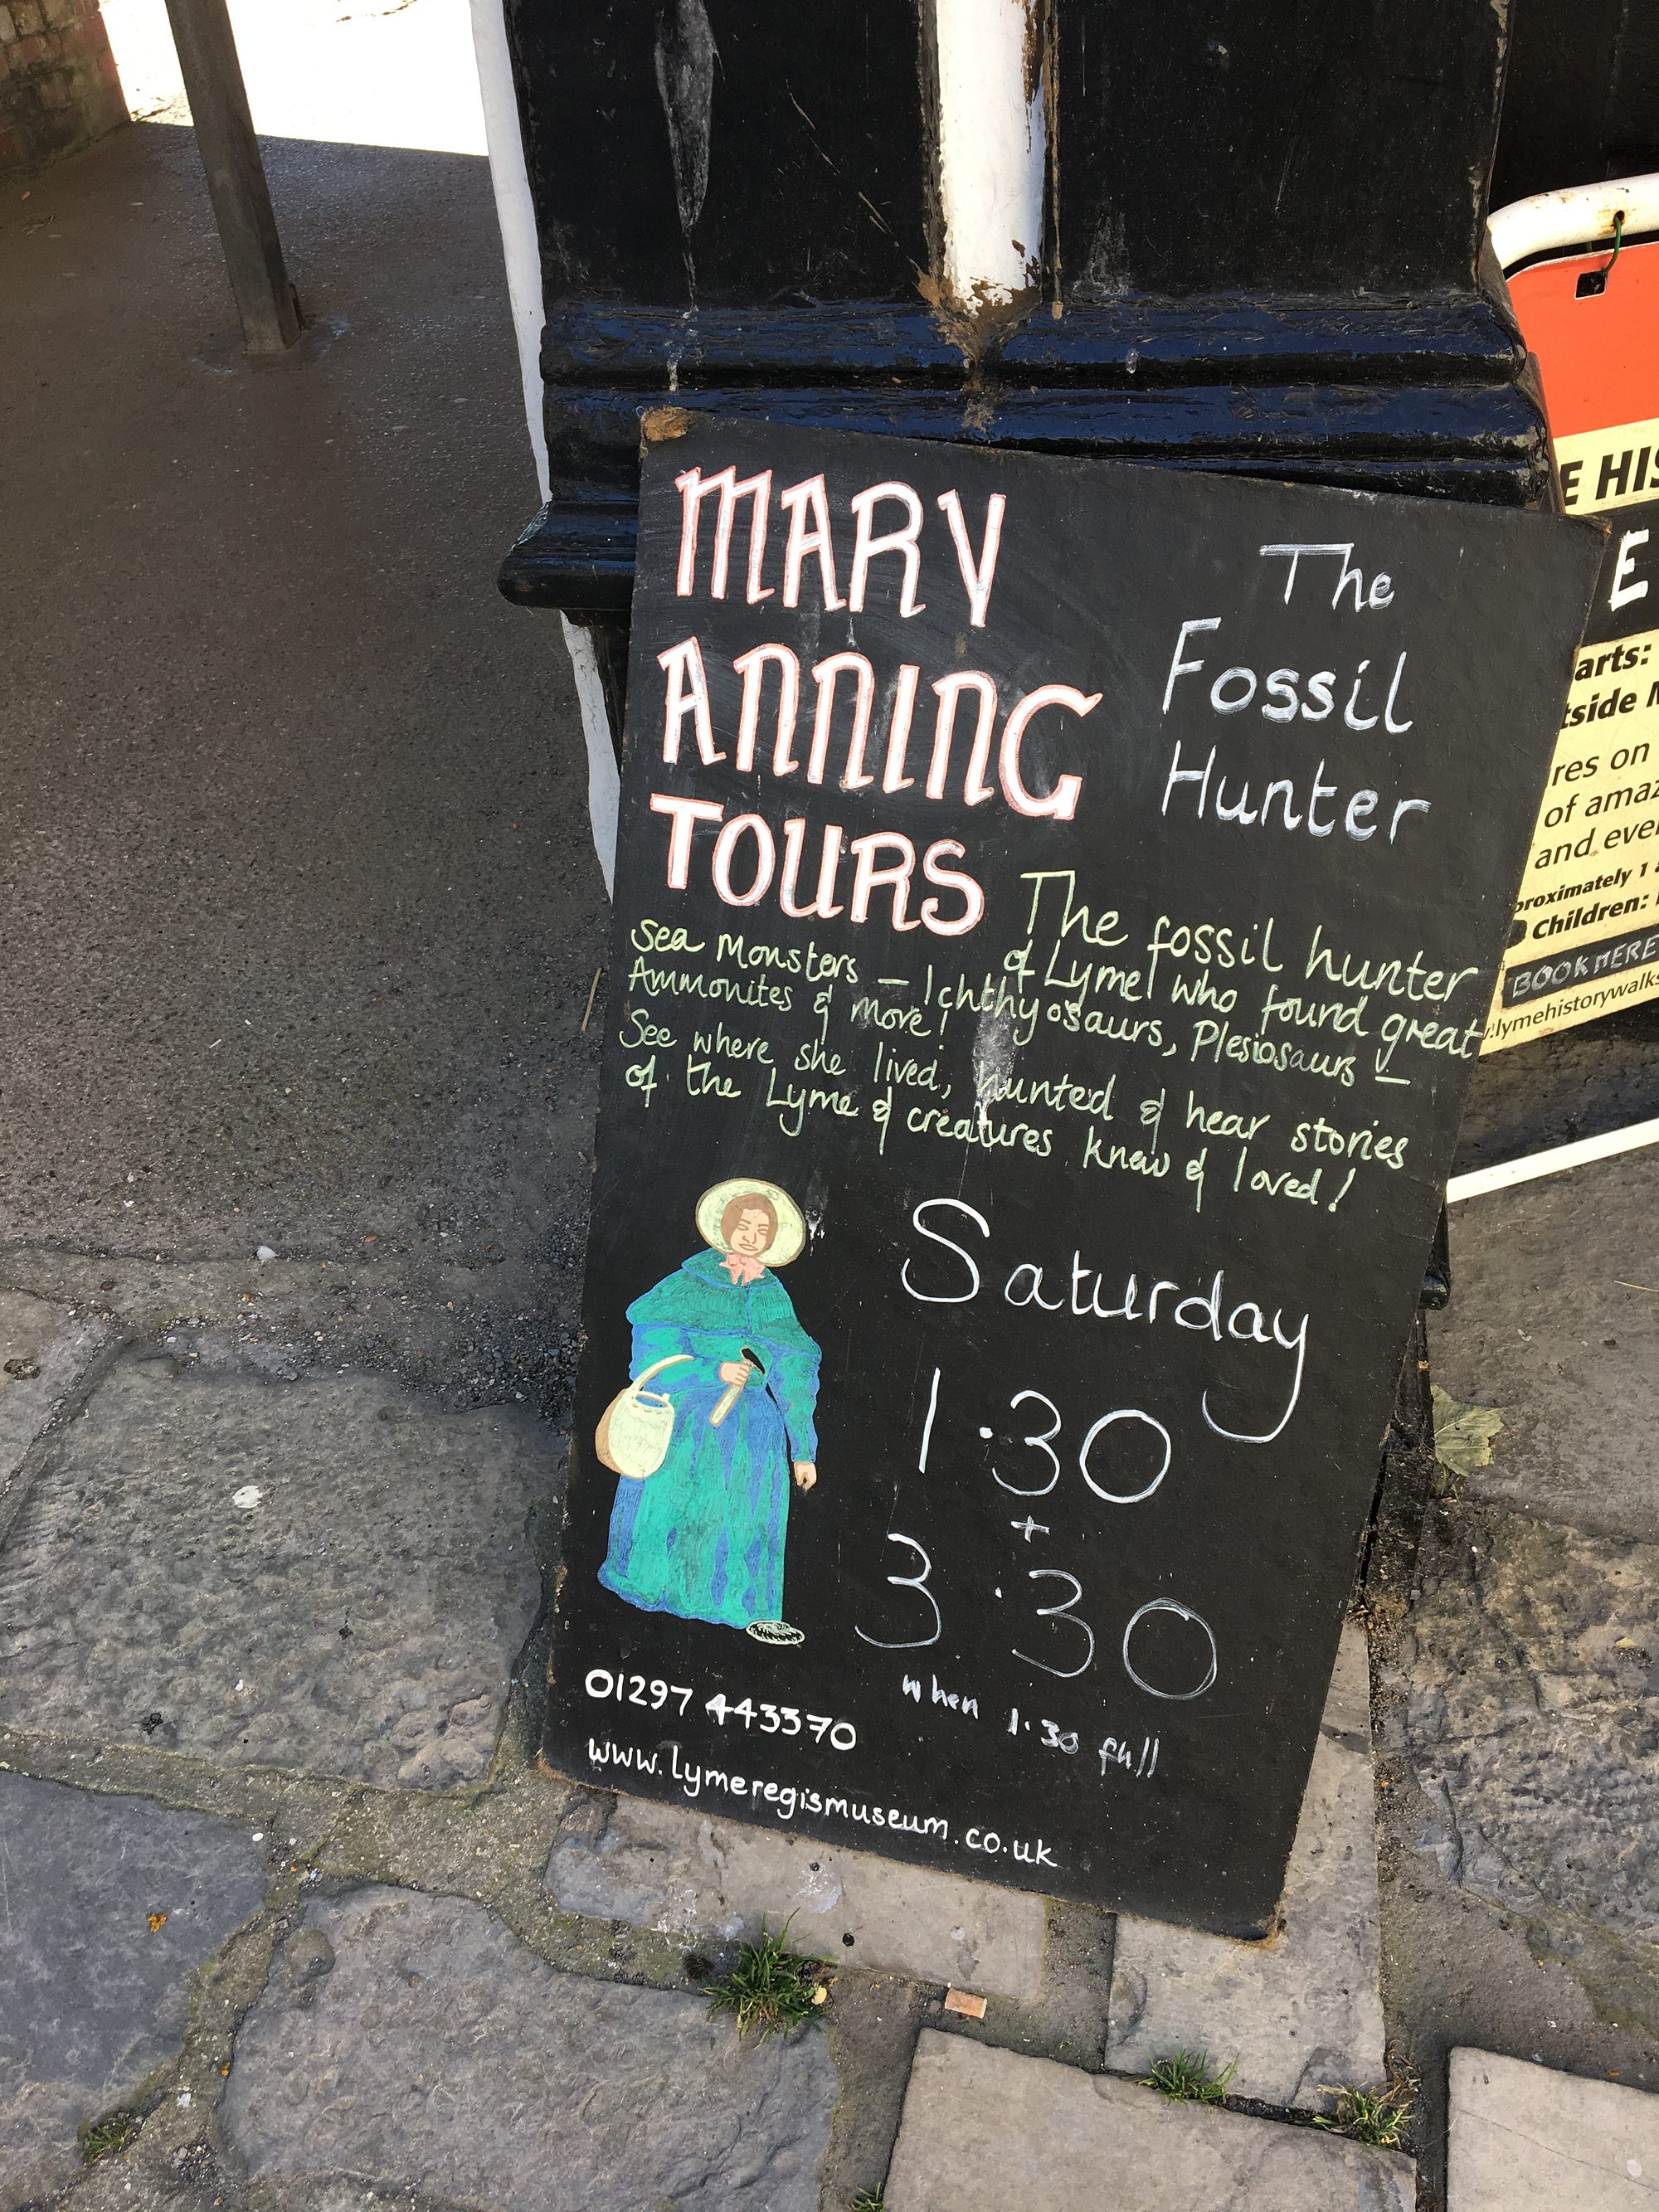 MARY
ANNING
TOURS
The
Fossil
Hunter
The fossil hunter
of Lyme who found great
Sea Monsters – Ichthyosaurs, Plesiosaurs –
Ammonites & more!
See where she lived, hunted & hear stories
of the Lyme & creatures knew & loved!
Saturday
1.30
+
3.30
when 1.30 full
01297 443370
www.lymeregismuseum.co.uk
E HIS
E
arts:
tside
res on
of amaz
and eve
proximately 1
Children:
BOOK HERE
.lymehistorywalks